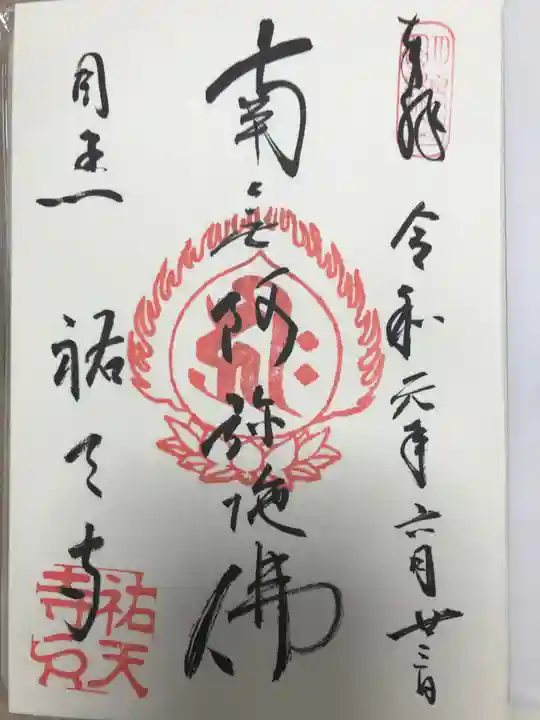 奉拝
令和元年六月廿三日
南無阿弥陀佛
目黒
祐天寺
祐天
寺印